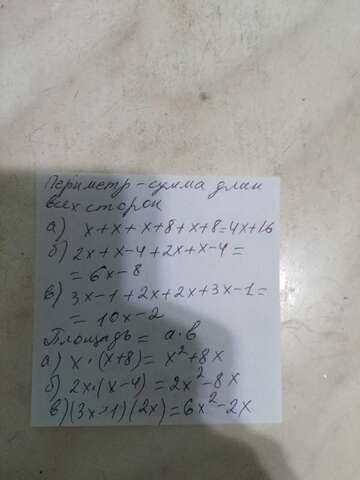 Периметр - сумма длин
всех сторон
а) x + x + x+8 + x+8 = 4x+16
б) 2x + x-4 + 2x + x-4 =
= 6x-8
в) 3x-1 + 2x + 2x + 3x-1 =
= 10x-2
Площадь = a·b
а) x·(x+8) = x²+8x
б) 2x·(x-4) = 2x²-8x
в) (3x-1)(2x) = 6x²-2x